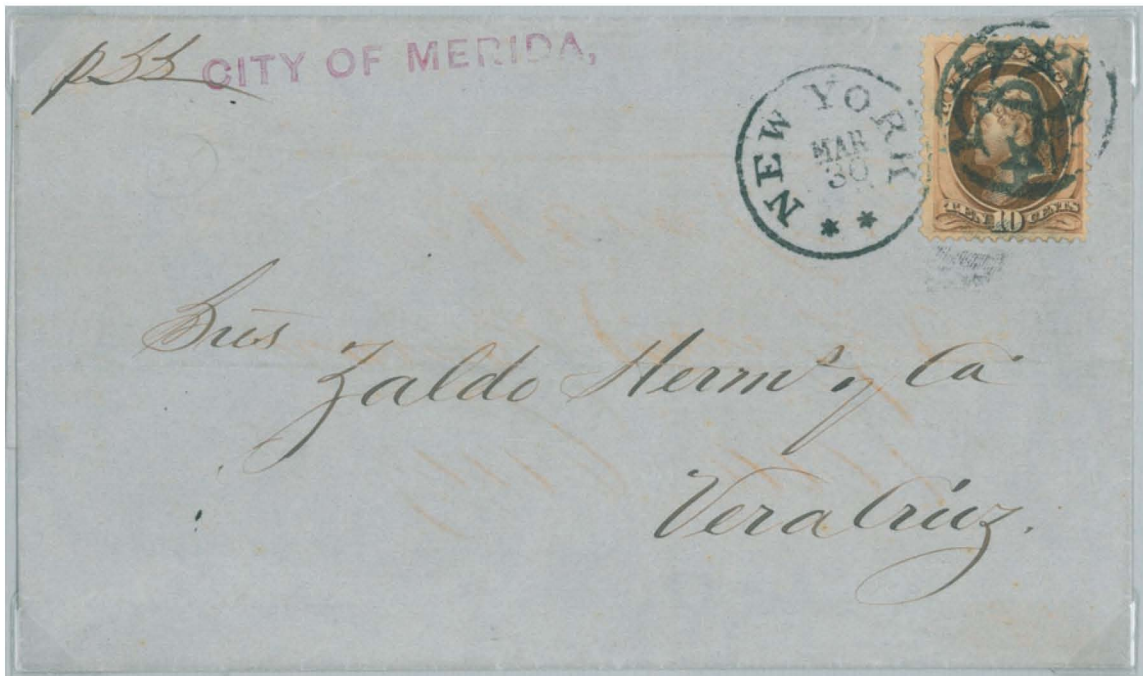 p SS CITY OF MERIDA,
NEW YORK
MAR
30
TEN 10 CENTS
Srès
Zaldo Herm^s. y Ca
Vera Cruz.